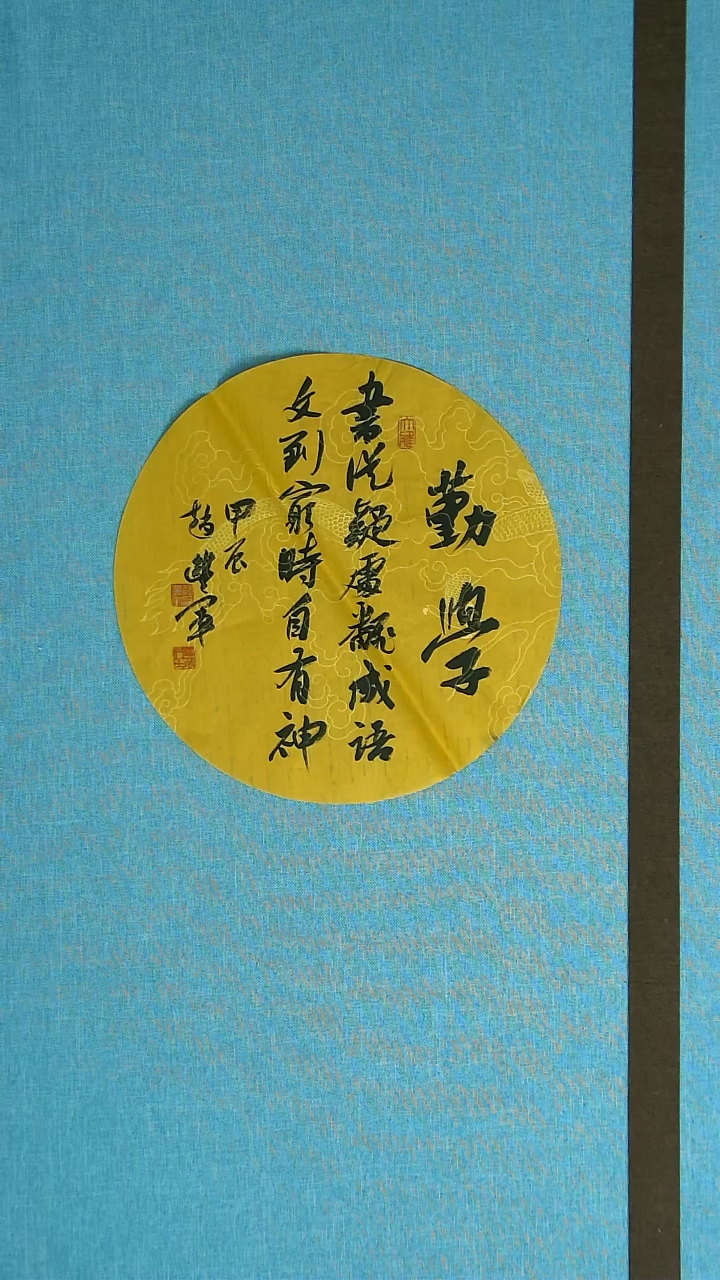 勤學
書從疑處翻成語
文到窮時自有神
甲辰
趙軍